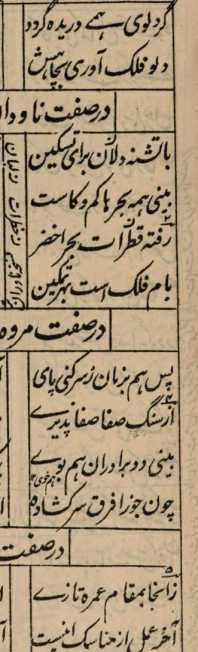 گر دلوی همے دریده گردد
دلو فلک آوری بچاهش
در صفت ناودا
با تشنه دلان برای تسکین
بینی همه بحرها کم و کاست
رفته قطرات بحر اخضر
بام فلک است بهر تمکین
در صفت مروه
پس هم بزبان ز سر کنی پای
از سنگ صفا صفا پذیرے
بینی دو برادران هم بوے
چون جوزا فرق سر کشاده
در صفت
زانجا بمقام عمره تازے
آخر عمل از مناسک اینست